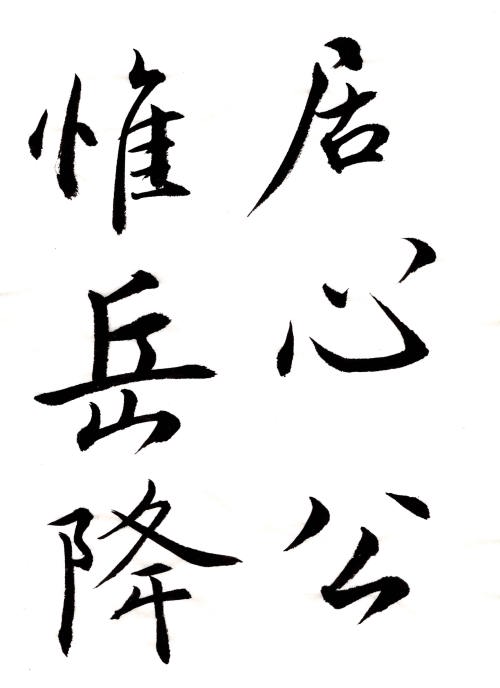 居心公
惟岳降